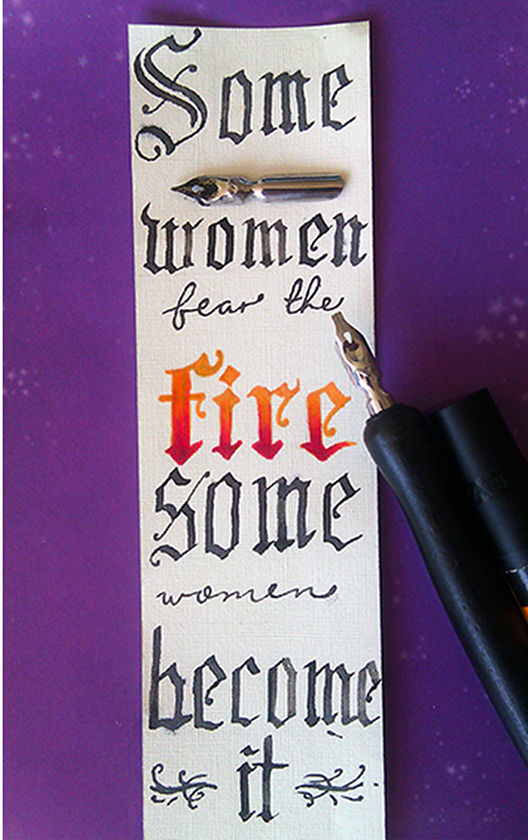 Some
women
fear the
fire
some
women
become
it